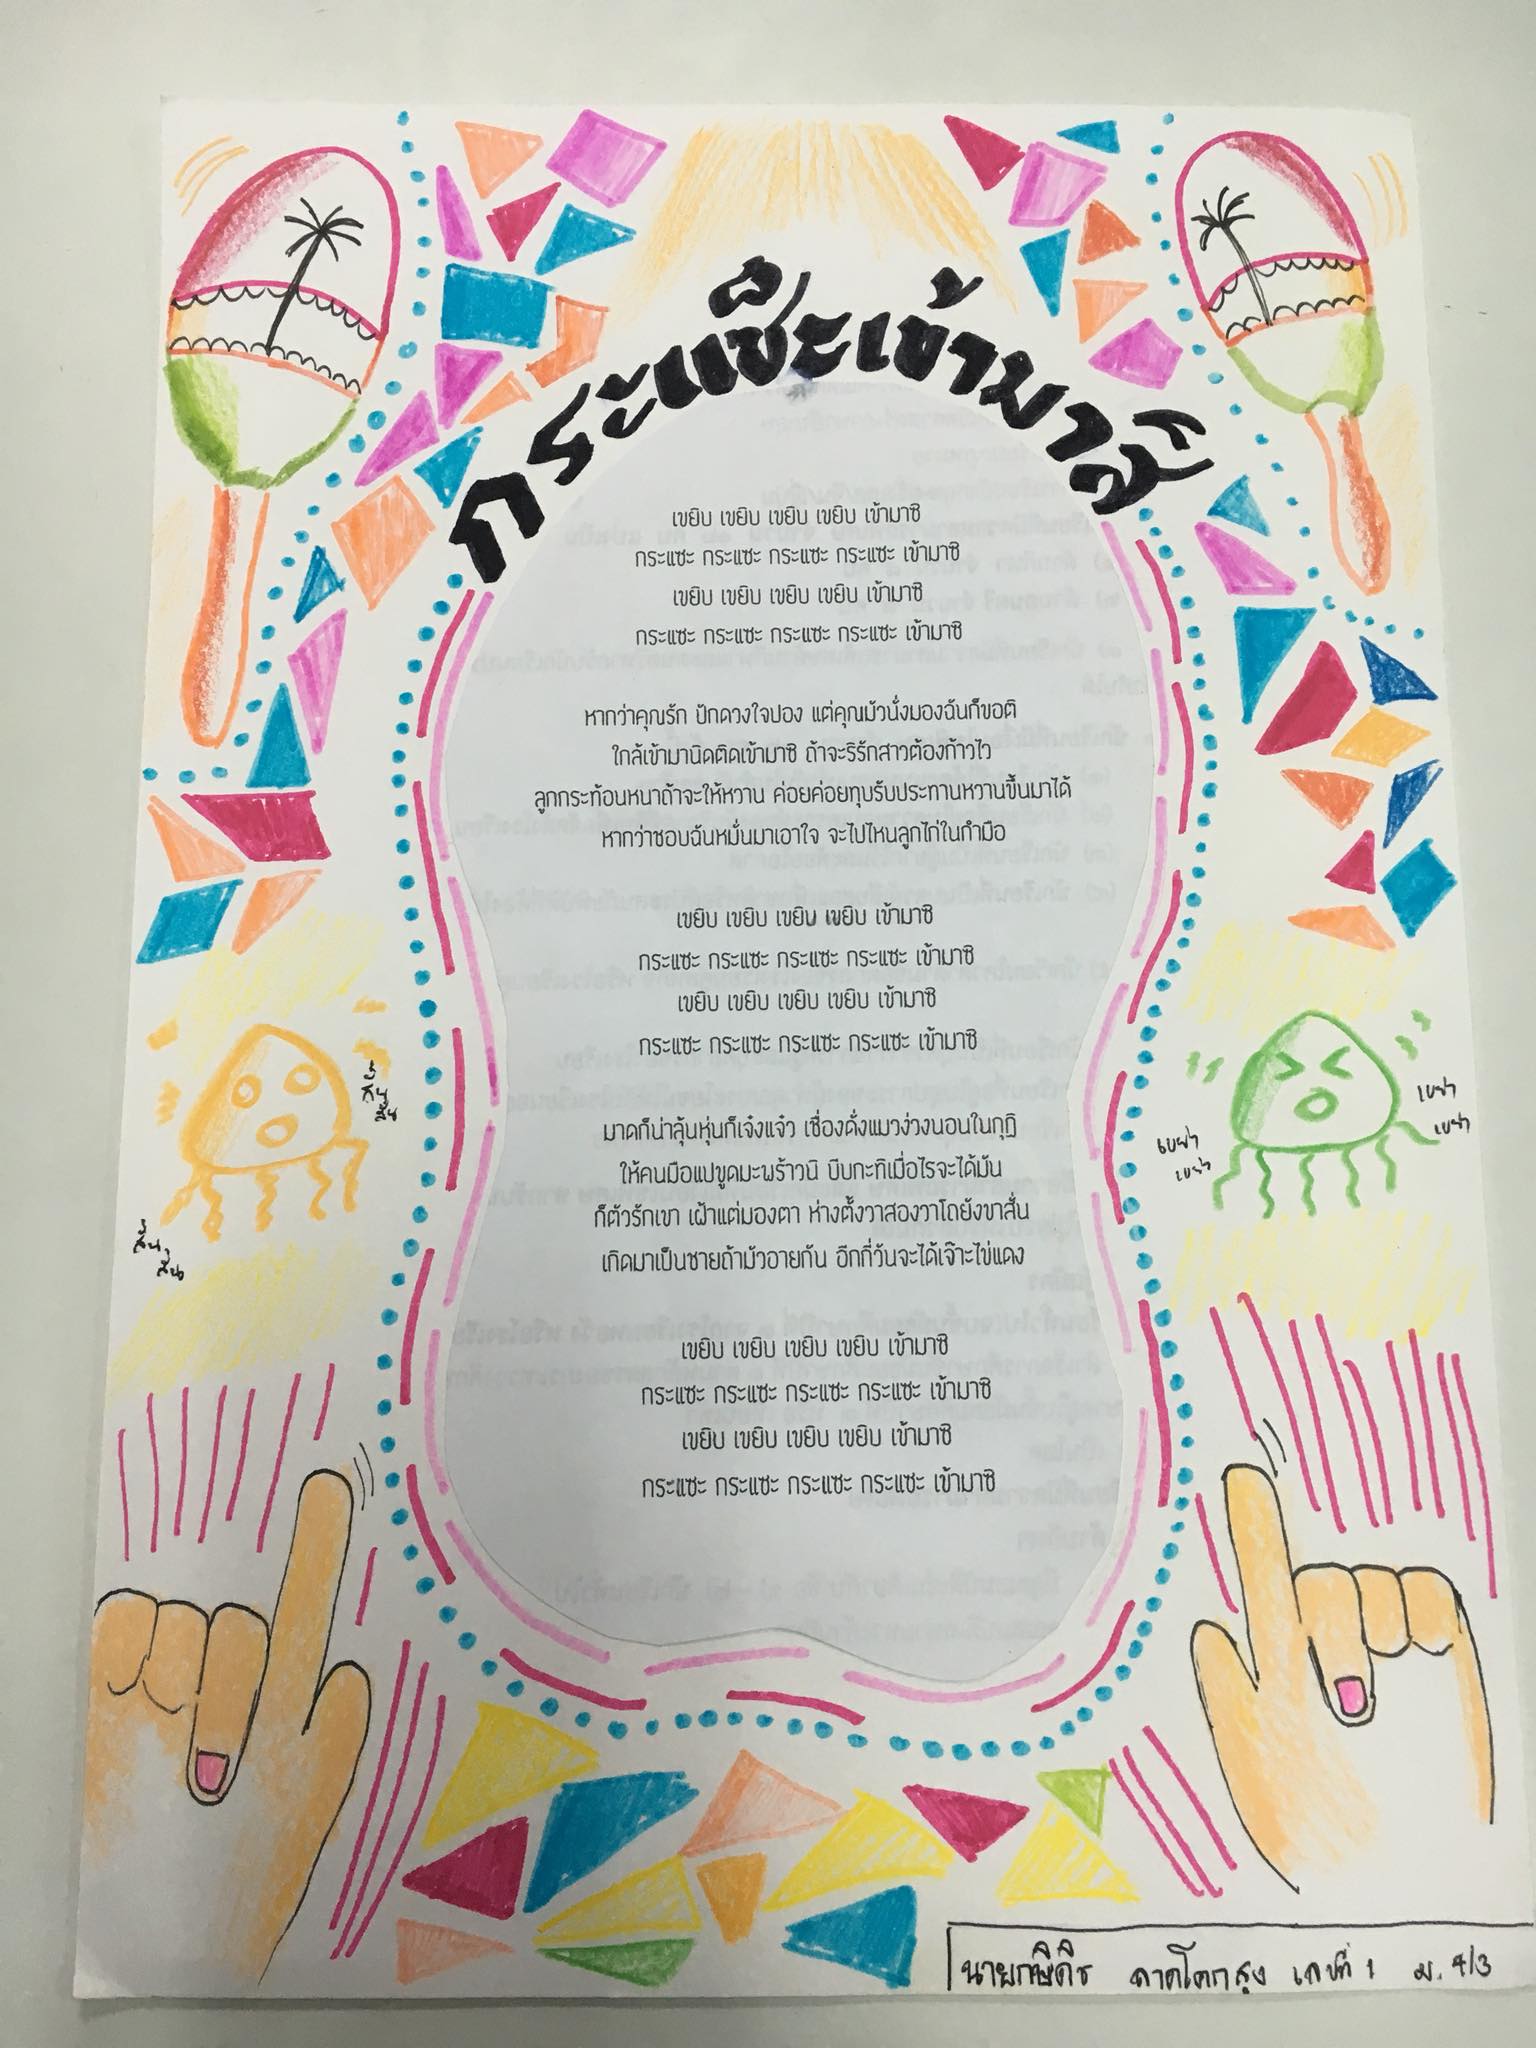 กระแซะเข้ามาสิ
เขยิบ เขยิบ เขยิบ เขยิบ เข้ามาซิ
กระแซะ กระแซะ กระแซะ กระแซะ เข้ามาซิ
เขยิบ เขยิบ เขยิบ เขยิบ เข้ามาซิ
กระแซะ กระแซะ กระแซะ กระแซะ เข้ามาซิ
หากว่าคุณรัก ปักดวงใจปอง แต่คุณมัวนั่งมองฉันก็ขอติ
ใกล้เข้ามานิดติดเข้ามาซิ ถ้าจะริรักสาวต้องก้าวไว
ลูกกระท้อนหนาถ้าจะให้หวาน ค่อยค่อยทุบรับประทานหวานขึ้นมาได้
หากว่าชอบฉันหมั่นมาเอาใจ จะไปไหนลูกไก่ในกำมือ
เขยิบ เขยิบ เขยิบ เขยิบ เข้ามาซิ
กระแซะ กระแซะ กระแซะ กระแซะ เข้ามาซิ
เขยิบ เขยิบ เขยิบ เขยิบ เข้ามาซิ
กระแซะ กระแซะ กระแซะ กระแซะ เข้ามาซิ
มาดก็น่าลุ้นหุ่นก็เจ๋งแจ๋ว เชื่องดั่งแมวง่วงนอนในกุฏิ
ให้คนมือแปขูดมะพร้าวนิ บีบกะทิเมื่อไรจะได้มัน
ก็ตัวรักเขา เฝ้าแต่มองตา ห่างตั้งวาสองวาโถยังขาสั่น
เกิดมาเป็นชายถ้ามัวอายกัน อีกกี่วันจะได้เจ๊าะไข่แดง
เขยิบ เขยิบ เขยิบ เขยิบ เข้ามาซิ
กระแซะ กระแซะ กระแซะ กระแซะ เข้ามาซิ
เขยิบ เขยิบ เขยิบ เขยิบ เข้ามาซิ
กระแซะ กระแซะ กระแซะ กระแซะ เข้ามาซิ
สั่น
สั่น
สั่น
สั่น
เขย่า
เขย่า
เขย่า
เขย่า
เลขที่ 1 ม.4/3